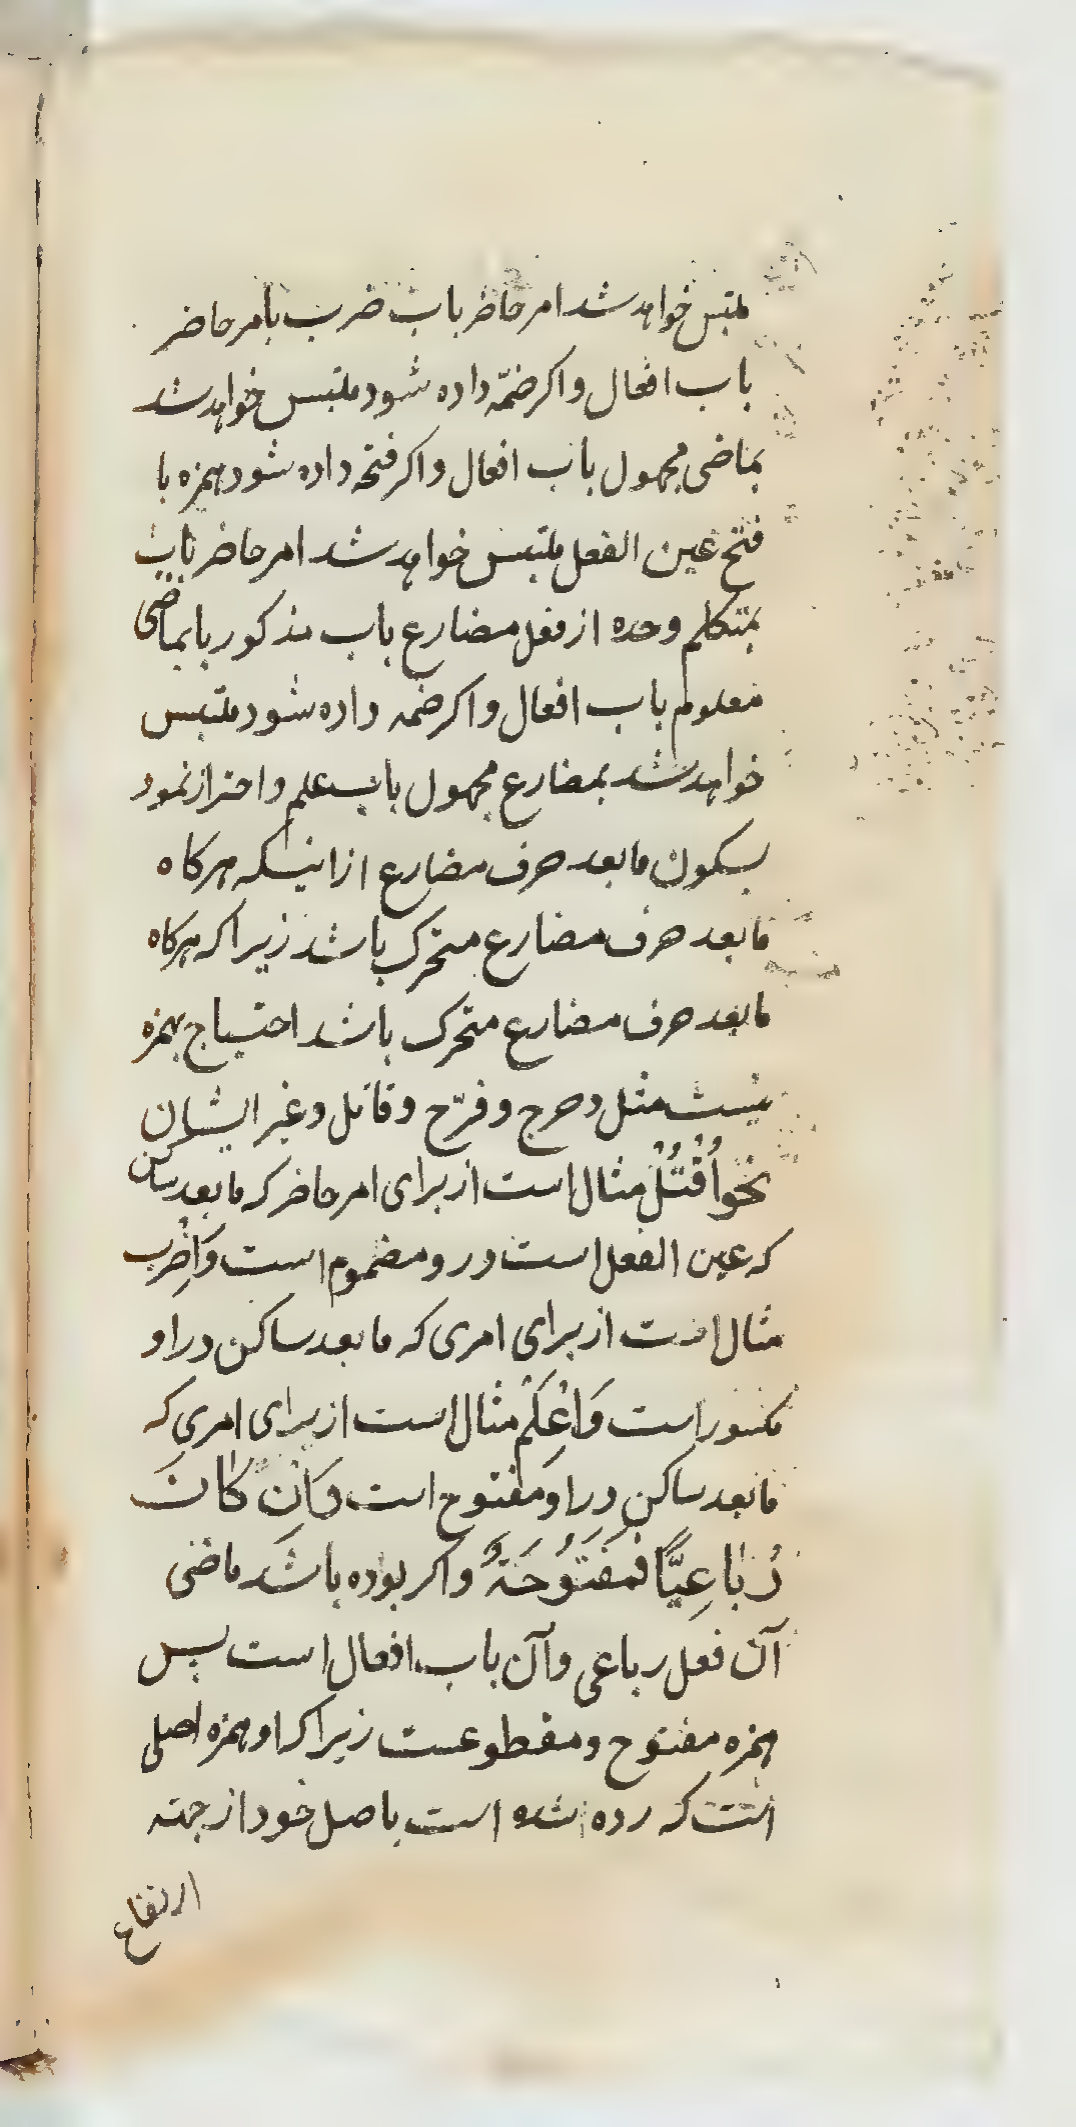 ملتبس خواهد شد امر حاضر باب ضرب بامر حاضر
باب افعال و اکر ضمّه داده شود ملتبس خواهد شد
بماضی مجهول باب افعال و اکر فتحه داده شود همزه با
فتح عین الفعل ملتبس خواهد شد امر حاضر باب
بمتکلم وحده از فعل مضارع باب مذکور یا بماضی
معلوم باب افعال و اکر ضمه داده شود ملتبس
خواهد شد بمضارع مجهول باب علم و احتراز نمود
بسکون ما بعد حرف مضارع از اینکه هرکاه
ما بعد حرف مضارع متحرک باشد زیرا که هرکاه
ما بعد حرف مضارع متحرک باشد احتیاج بهمزه
نیست مثل دحرج و فرّح و قاتل و غیر ایشان
نحو اُقْتُلْ مثال است از برای امر حاضر که ما بعد ساکن
که عین الفعل است در او مضموم است وَاِضْرِب
مثال است از برای امری که ما بعد ساکن در او
مکسور است وَاِعْلَمْ مثال است از برای امری که
ما بعد ساکن در او مفتوح است وَاِنْ کٰانَ
رُبٰاعِیًّا فَمَفْتُوحَةٌ و اکر بوده باشد ماضی
آن فعل رباعی و آن باب افعال است پس
همزه مفتوح و مقطوعست زیرا که او همزه اصلی
است که رده شده است باصل خود از جهته
ارتفاع